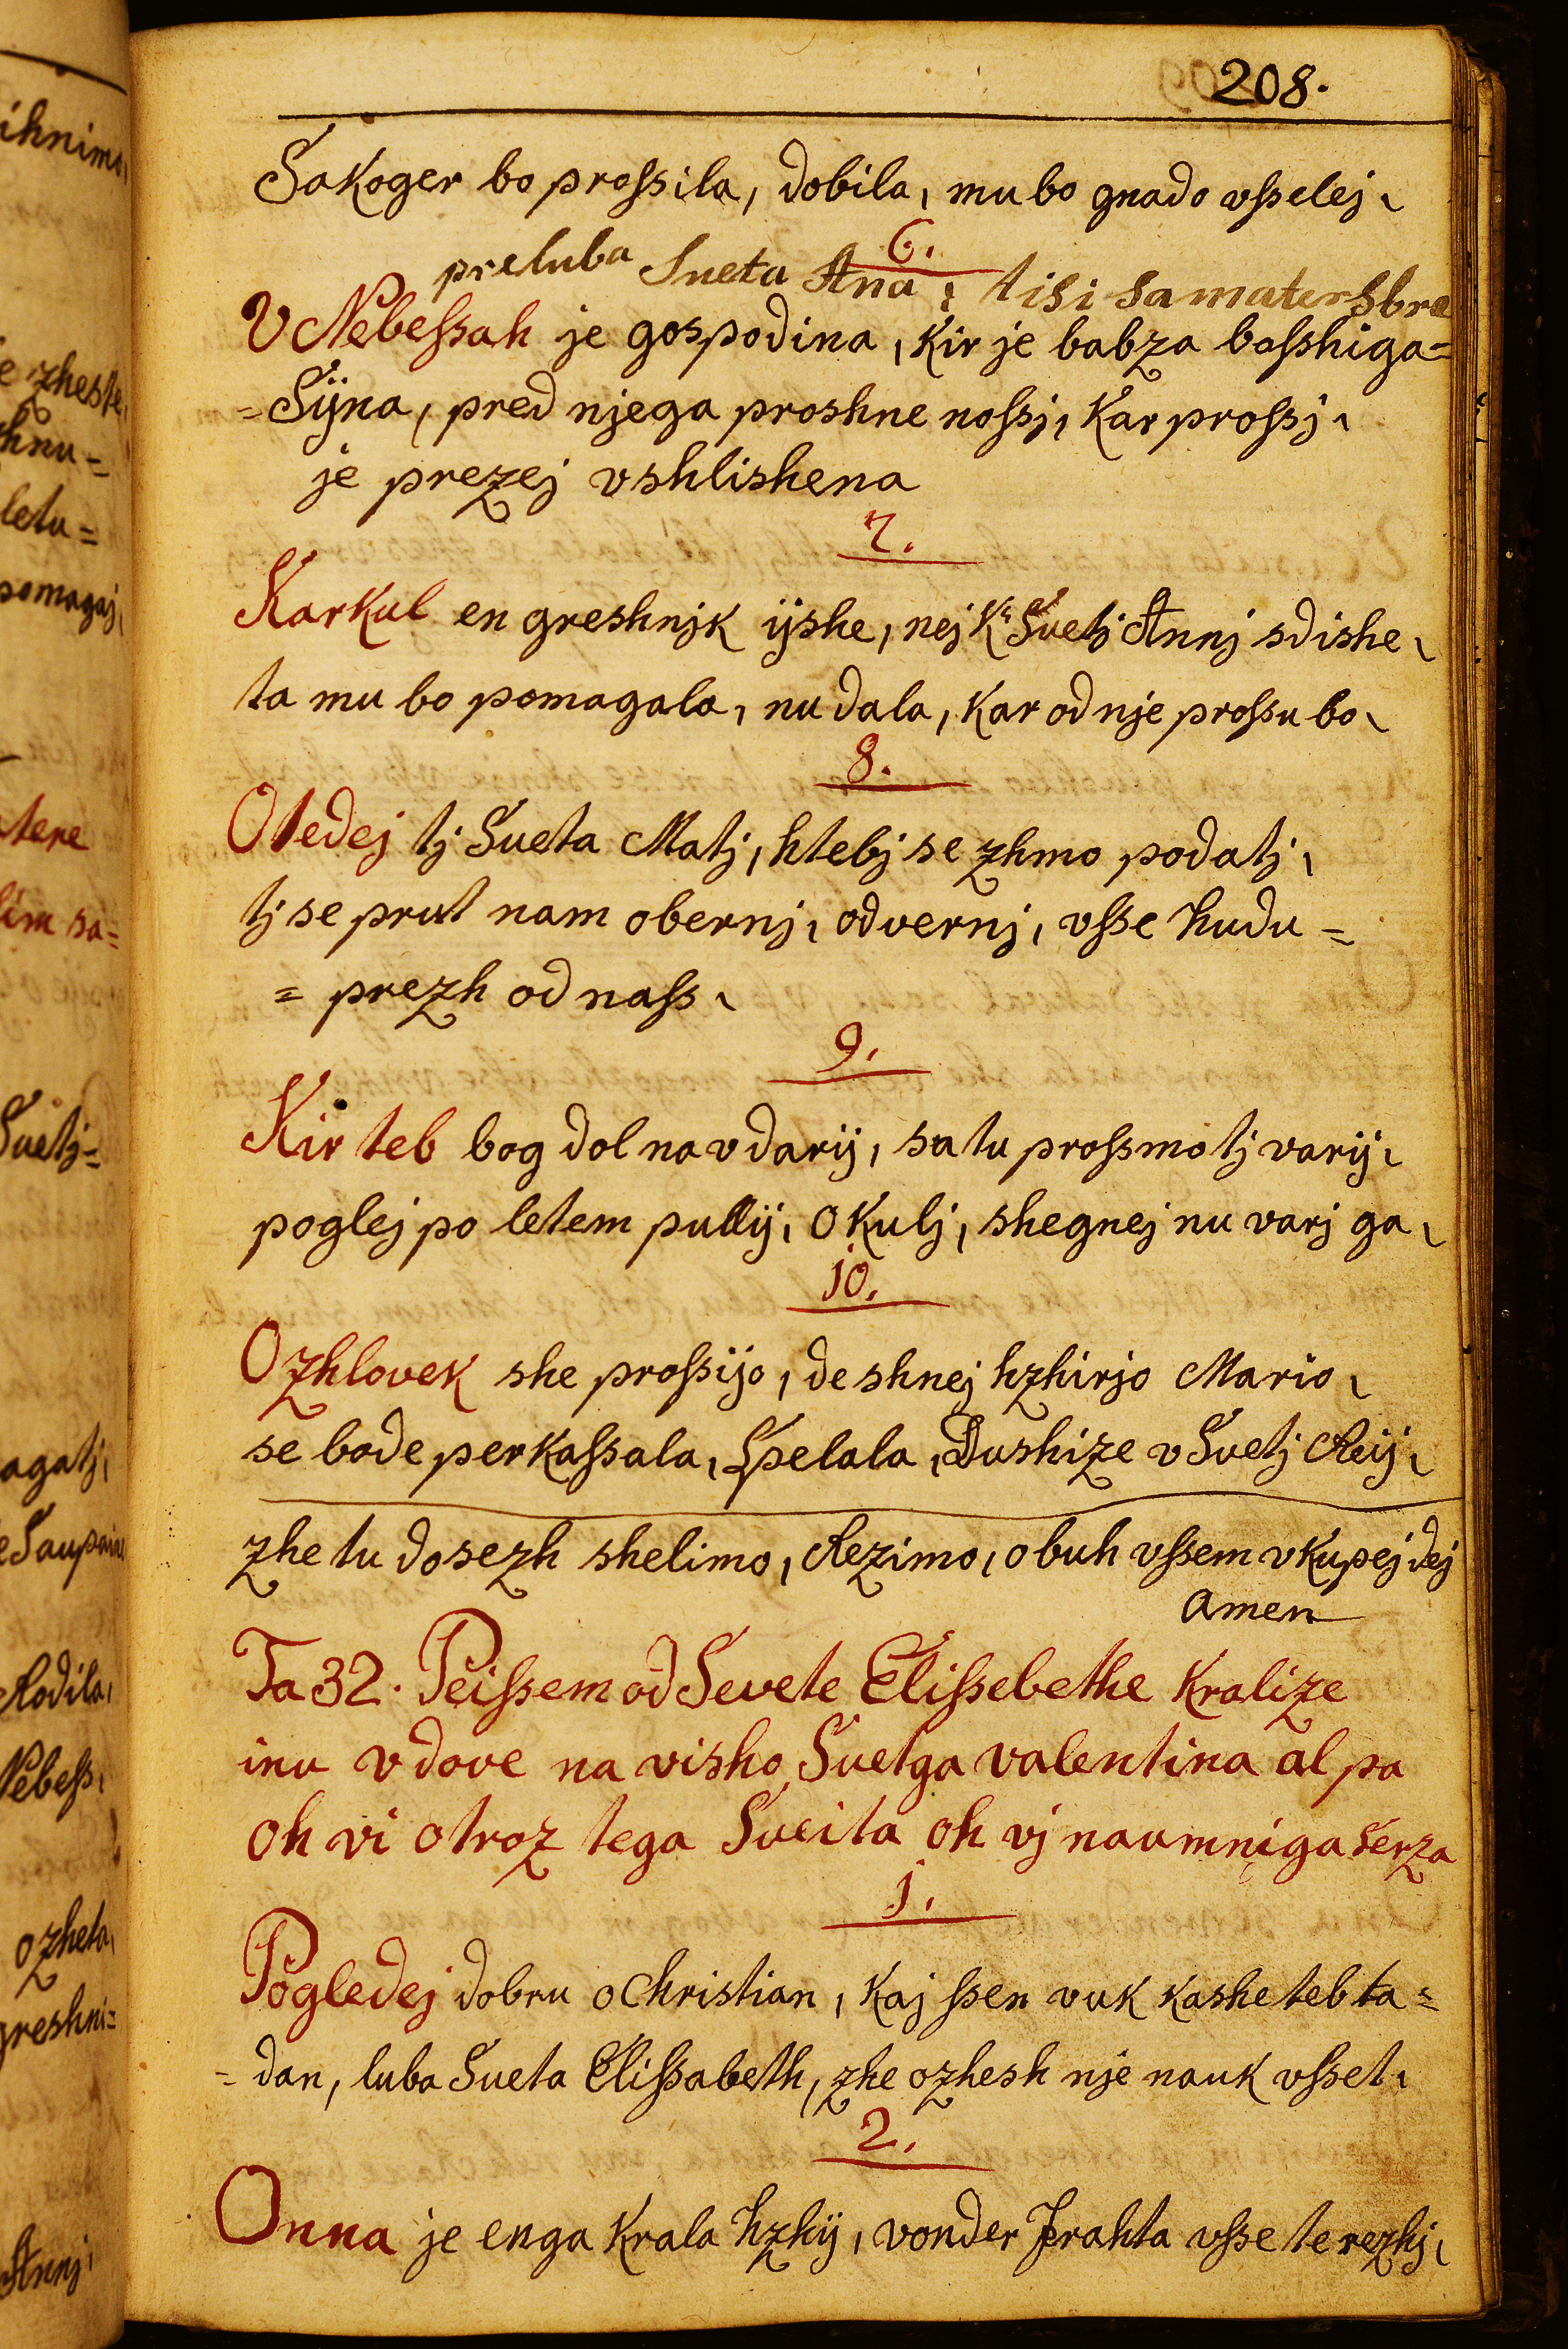 208.
Sakoger bo proſsila, dobila, mu bo gnado vſselej,
6.
preluba Sueta Ana, ti si sa mater sbra
V Nebeſsah je gospodina, Kir je babza boſshiga=
=Sijna, pred njega proshne noſsj, Kar proſsj,
je prezej vshlishena
7.
KarKul en greshnjk ijshe, nej K' Suetj Annj sdishe,
ta mu bo pomagala, nu dala, Kar od nje proſsu bo,
8.
Otedej tj Sueta Matj, h tebj se zhmo podatj,
tj se prut nam obernj, odvernj, vſse hudu=
= prezh od naſs,
9.
Kir teb bog dol na vdarij, sa tu proſsmo tj varij,
poglej po letem pullij, o Kulj, shegnej nu varj ga,
10.
O zhlovek she proſsijo, de shnej hzhirjo Mario,
se bode perKaſsala, Spelala, Dushize v Suetj Reij,
zhe tu dosezh shelimo, Rezimo, o buh vſsem vKupej dej
Amen
Ta 32. Peiſsem od Sevete Eliſsebethe Kralize
inu vdove na visho Suetga valentina al pa
oh vi otroz tega Sveita oh vj naumniga serza
1.
Pogledej dobru o Christian, Kaj ſsen vuk kashe teb ta=
= dan, luba Sueta Eliſsabeth, zhe ozhesh nje nauk vſset,
2.
Onna je enga Krala hzhij, vonder Frahta vſse te rezhj,
ihnimo,
e zheste,
hnu=
letu=
pomagaj,
tere
lim sa=
Suetj=
agatj,
Rodila,
Nebeſs,
ozheta,
greshni=
Annj,